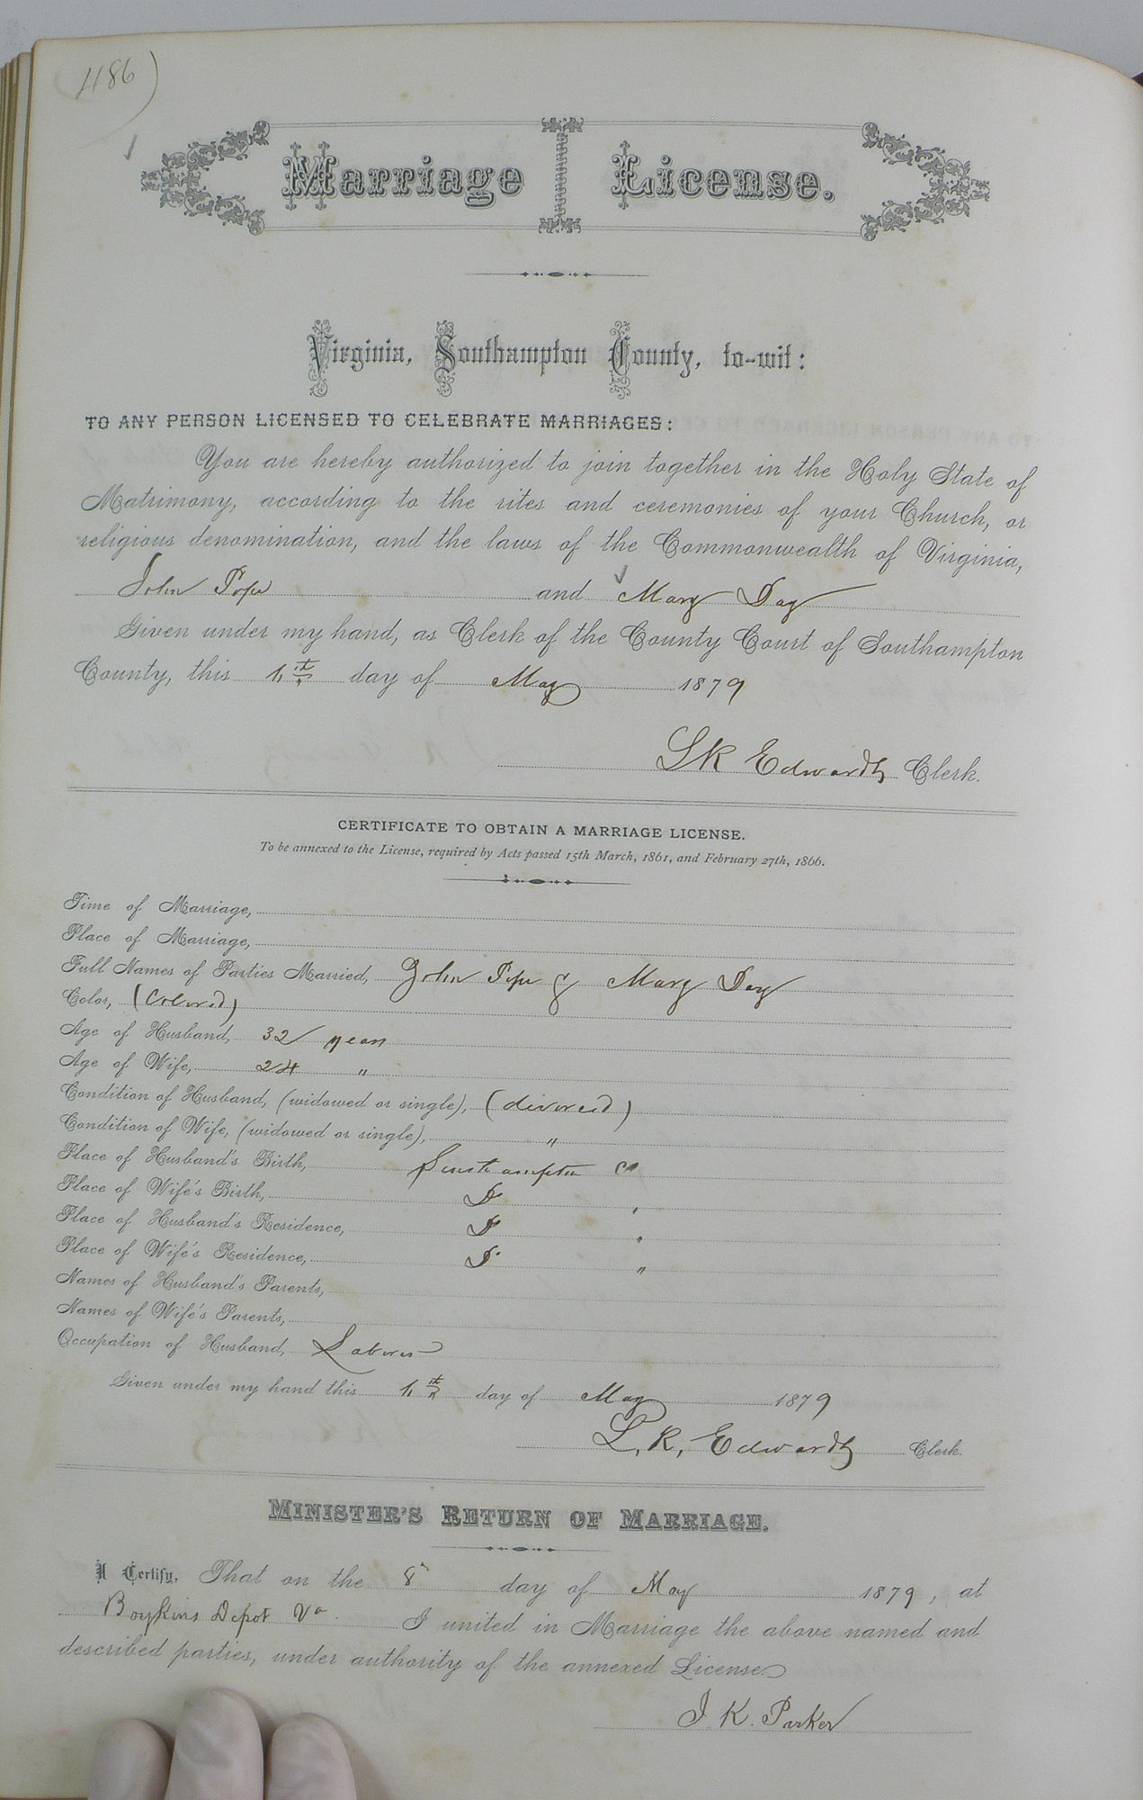 1186)
Marriage License.
Virginia, Southampton County, to-wit:
TO ANY PERSON LICENSED TO CELEBRATE MARRIAGES:
You are hereby authorized to join together in the Holy State of
Matrimony, according to the rites and ceremonies of your Church, or
religious denomination, and the laws of the Commonwealth of Virginia,
John Pope and Mary Day
Given under my hand, as Clerk of the County Court of Southampton
County, this day of May 1879
L R Edwards Clerk.
CERTIFICATE TO OBTAIN A MARRIAGE LICENSE.
To be annexed to the License, required by Acts passed 15th March, 1861, and February 27th, 1866.
Time of Marriage,
Place of Marriage,
Full Names of Parties Married, John Pope & Mary Day
Color, (Colored)
Age of Husband, 32 years
Age of Wife, 24 "
Condition of Husband, (widowed or single), (divorced)
Condition of Wife, (widowed or single), "
Place of Husband's Birth, Southampton Co
Place of Wife's Birth, Do "
Place of Husband's Residence, Do "
Place of Wife's Residence, Do "
Names of Husband's Parents,
Names of Wife's Parents,
Occupation of Husband, Laborer
Given under my hand this day of May 1879
L. R. Edwards Clerk.
MINISTER'S RETURN OF MARRIAGE.
I Certify, That on the 8 day of May 1879, at
Boykins Depot Va. I united in Marriage the above named and
described parties, under authority of the annexed License.
J. K. Parker